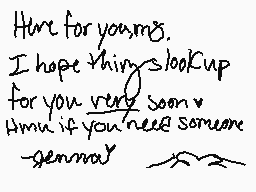 Here for you, ms.
I hope things look up
for you very soon ♥
Hmu if you need someone
-Jenna ♥